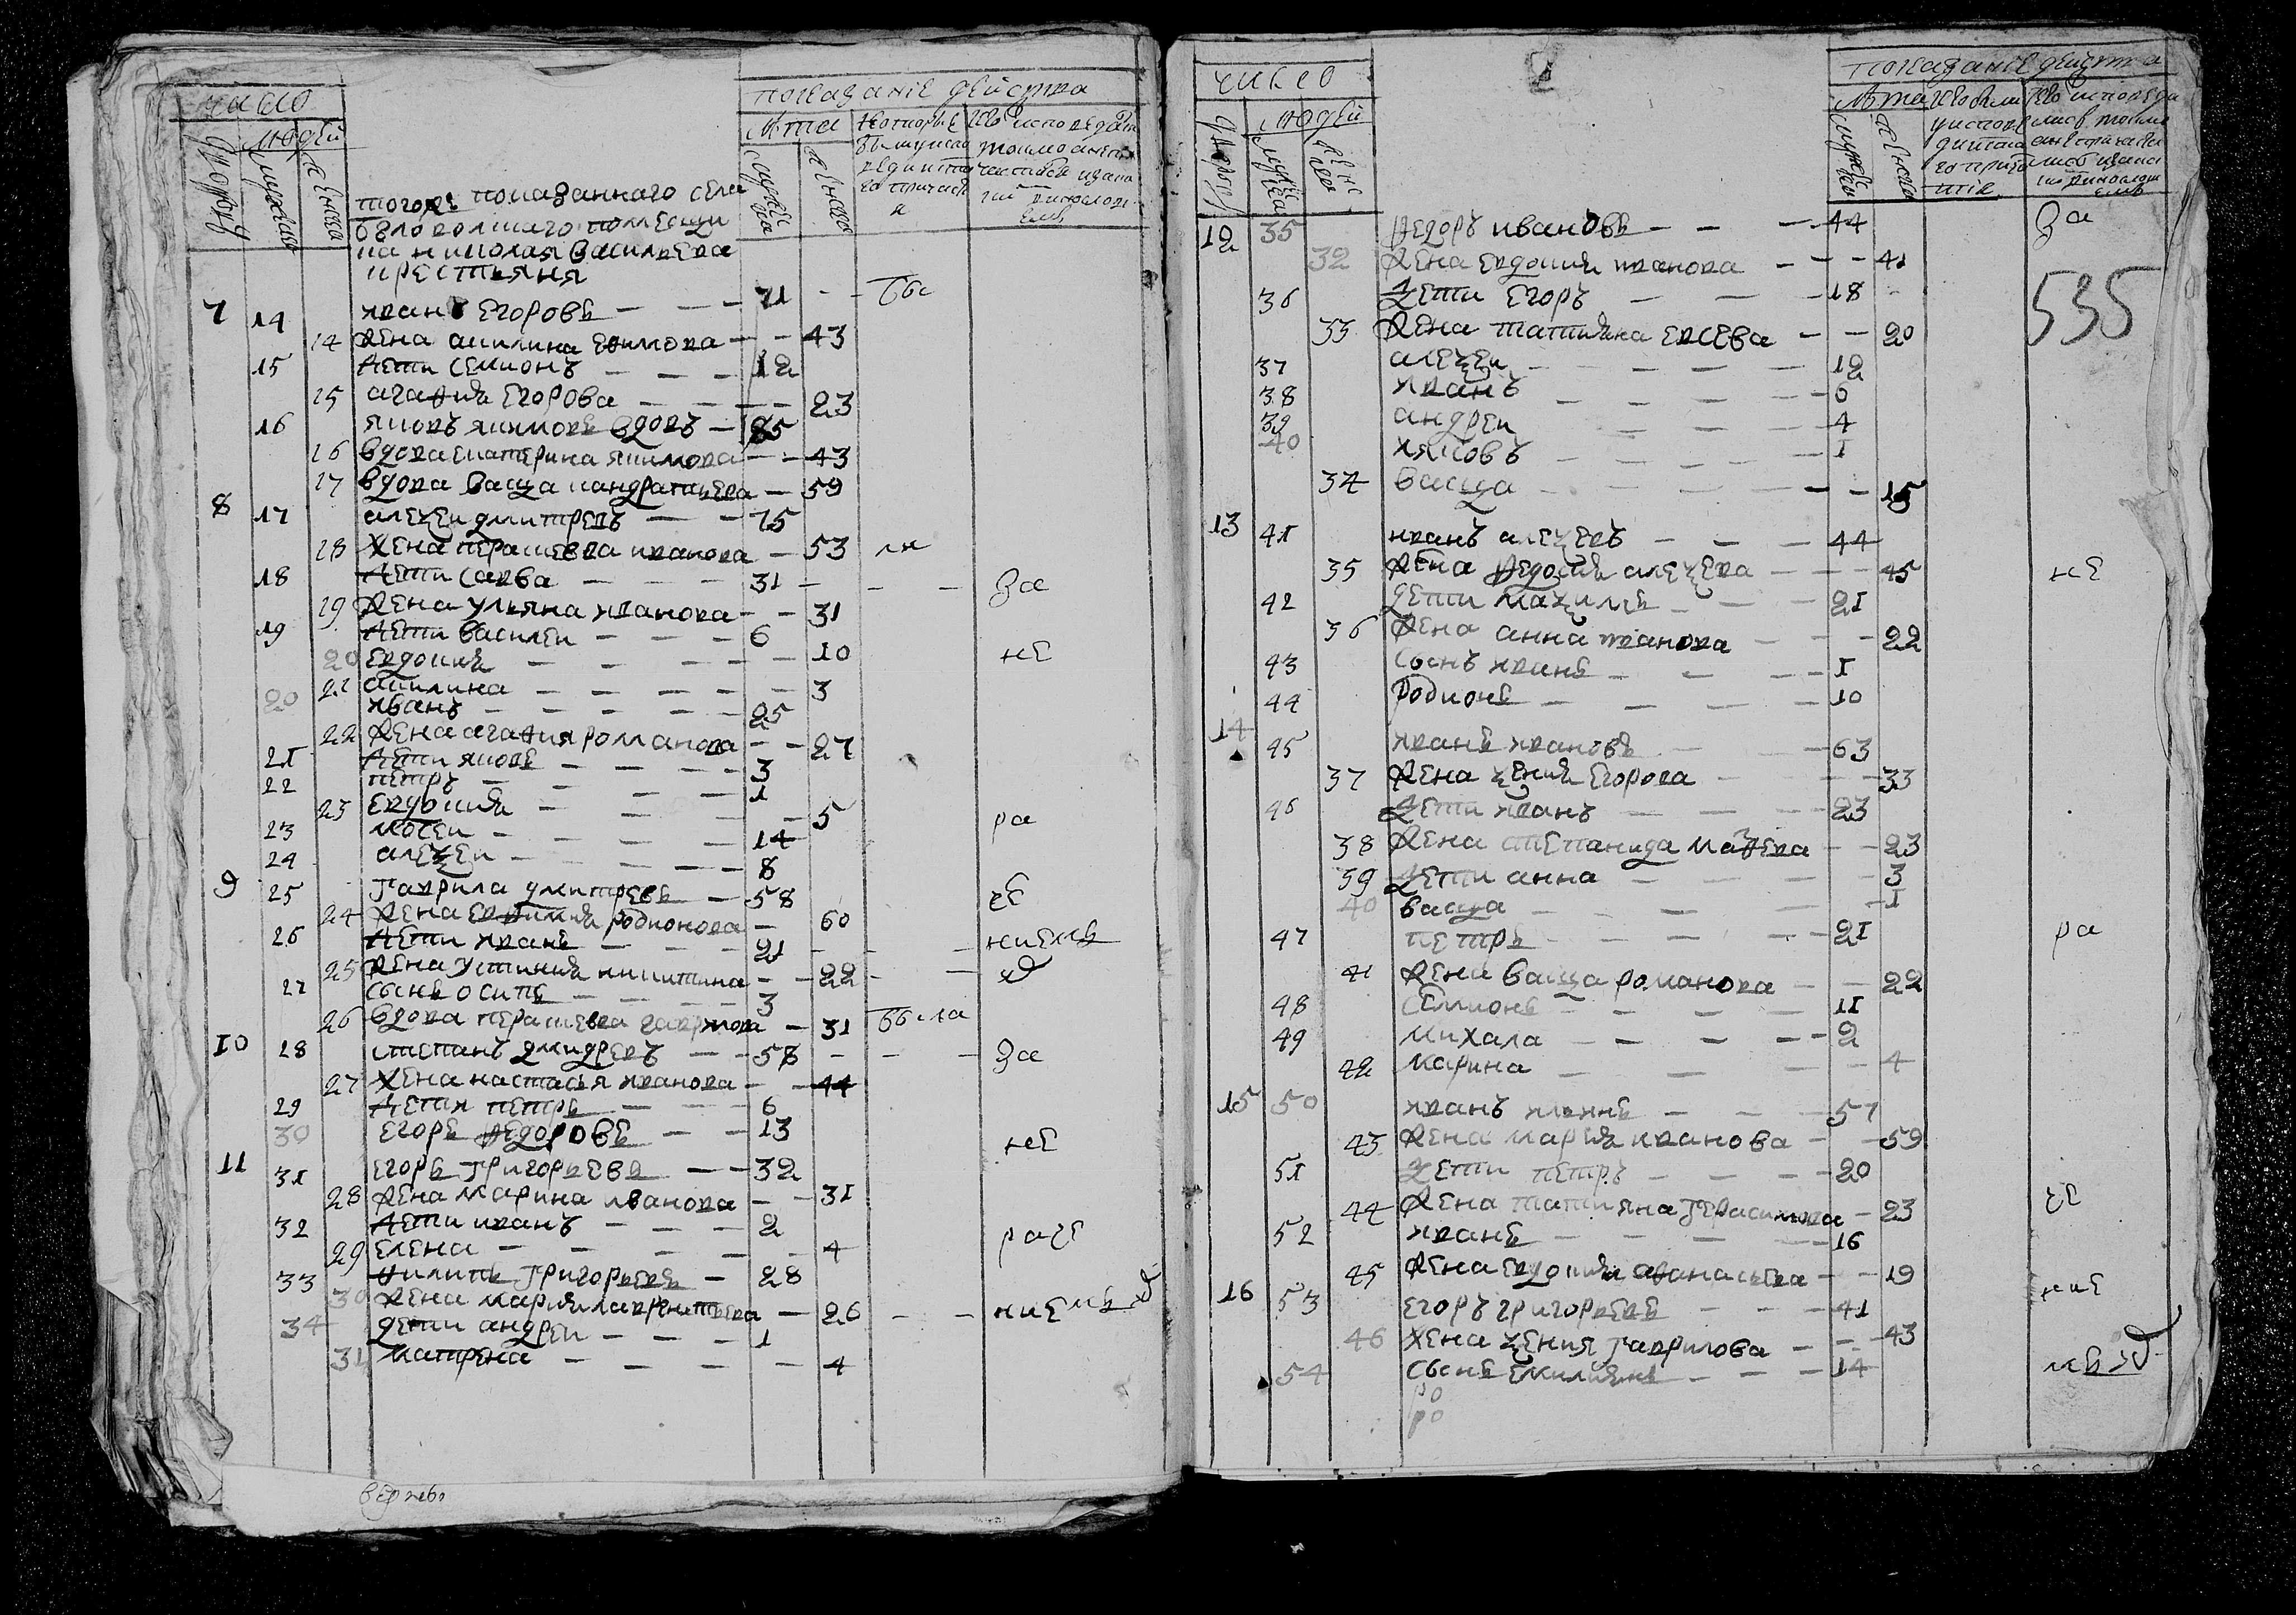 число
людей
дворов
мужеска
женска
показание действа
лета
мужеска
женска
тогожъ показанного села
бѣлоколцкаго помещи
ка николая васильева
крестьяня
7 14 иванъ егоровъ — — — 71 — — бы
14 жена акилина ефимова — — 43
15 дети семионъ — — — 12
15 агафия егорова — — — — 23
16 яковъ якимовъ вдовъ — 85
16 вдова екатерина якимова — — 43
17 вдова васща кандратьева — 59
8 17 алеѯеи дмитревъ — — 75
18 жена перасковва иванова — 53 ли
18 дети савва — — — 31 — — — за
19 жена ульяна иванова — — 31
19 дети василеи — — — 6
20 евдокия — — — — — 10 не
21 акилина — — — — — 3
20 иванъ — — — — — 25
22 жена агафия романова — — 27
21 дети яковъ — — — — 3
22 петръ — — — — 1
23 евдокия — — — — 5
23 мосеи — — — — 14 ра
24 алеѯеи — — — — 8
9 25 гаврила дмитревъ — 58 че
24 жена евфимия родионова — 60
26 дети иванъ — — — 21 — — — ниемъ
25 жена устиния никитина — — 22 — —
27 сынъ осипъ — — — — 3
26 вдова перасковва гаврилова — 31 была
10 28 степанъ дмидревъ — — 58 — — — за
27 жена настасья иванова — — 44
29 дети петръ — — — 6
30 егоръ федоровъ — — 13 не
11 31 егоръ григорьевъ — — 32
28 жена марина иванова — — 31
32 дети иванъ — — — 2
29 елена — — — — — — 4 раче
33 филипъ григорьевъ — 28
30 жена мария лаврентьева — 26 — — ниемъ
34 дети андреи — — — 1
31 матрена — — — — — 4
число
людей
дворов
мужеска
женска
показание действа
лета
мужеска
женска
12 35 федоръ ивановъ — — — 44 за
32 жена евдокия иванова — — — 41
36 дети егоръ — — — 18
535
33 жена татияна евсева — — 20
37 алеѯеи — — — — — 12
38 иванъ — — — — — 6
39 андреи — — — — 4
40 яковъ — — — — — 1
34 васща — — — — — 15
13 41 иванъ алеѯевъ — — — 44
35 жена федосия алеѯева — — — 45 не
42 дети маѯимъ — — — 21
36 жена анна иванова — — — 22
43 сынъ иванъ — — — 1
44 родионъ — — — — 10
14 45 иванъ ивановъ — — 63
37 жена ѯения егорова — — — 33
46 дети иванъ — — — 23
38 жена степанида мафева — — 23
39 дети анна — — — — 3
40 васща — — — — 1
47 петръ — — — — — 21 ра
41 жена васща романова — — 22
48 семионъ — — — — 11
49 михаила — — — — — 2
42 марина — — — — 4
15 50 иванъ — — — 57
43 жена мария иванова — — 59
51 дети петръ — — — — 20
44 жена татияна герасимова — 23 че
52 иванъ — — — — — 16
45 жена евдокия афанасьева — — 19
16 53 егоръ григорьевъ — — — 41 ние
46 жена ѯения гаврилова — — — 43
54 сынъ емилиянъ — — — 14 мъ
ро
ро